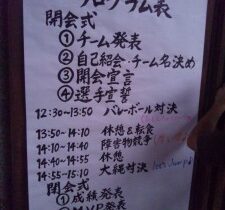 プログラム表
開会式
①チーム発表
②自己紹会・チーム名決め
③開会宣言
④選手宣誓
12:30~13:50 バレーボール対決
13:50~14:10 休憩&転食
14:10~14:40 障害物競争
14:40~14:55 休憩
14:55~15:10 大縄対決 Let's Jump
閉会式
①成績発表
②MVP発表